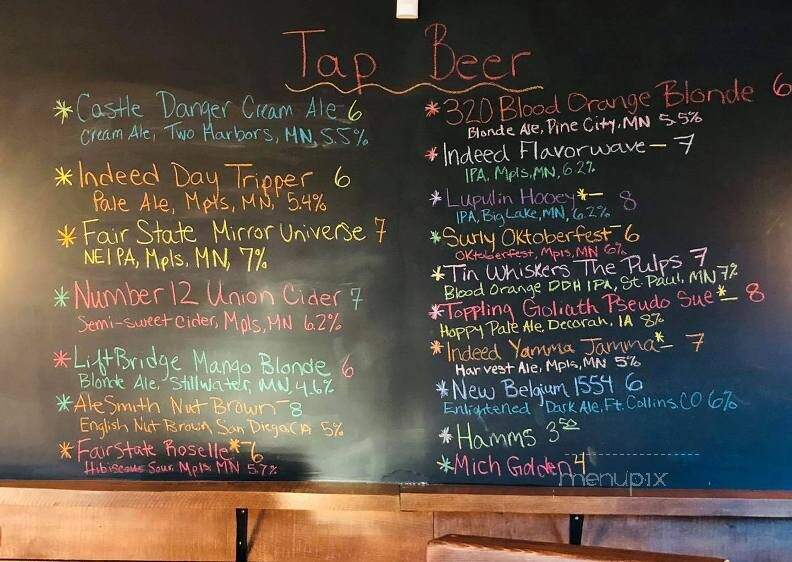 Tap Beer
* Castle Danger Cream Ale 6
Cream Ale, Two Harbors, MN 5.5%
* Indeed Day Tripper 6
Pale Ale, Mpls, MN, 5.4%
* Fair State Mirror Universe 7
NEIPA, Mpls, MN, 7%
* Number 12 Union Cider 7
Semi-sweet cider, Mpls, MN 6.2%
* Lift Bridge Mango Blonde 6
Blonde Ale, Stillwater, MN, 4.6%
* AleSmith Nut Brown - 8
English Nut Brown, San Diego CA 5%
* Fair State Roselle* - 6
Hibiscus Sour, Mpls MN 5.7%
* 320 Blood Orange Blonde 6
Blonde Ale, Pine City, MN 5.5%
* Indeed Flavorwave - 7
IPA, Mpls, MN, 6.2%
* Lupulin Hooey* - 8
IPA, Big Lake, MN, 6.2%
* Surly Oktoberfest - 6
Oktoberfest, Mpls, MN 6%
* Tin Whiskers The Pulps 7
Blood Orange DDH IPA, St. Paul, MN 7%
* Toppling Goliath Pseudo Sue* - 8
Hoppy Pale Ale, Decorah, IA 8%
* Indeed Yamma Jamma* - 7
Harvest Ale, Mpls, MN 5%
* New Belgium 1554 6
Enlightened Dark Ale, Ft. Collins, CO 6%
* Hamms 3 50
* Mich Golden 4
menupix